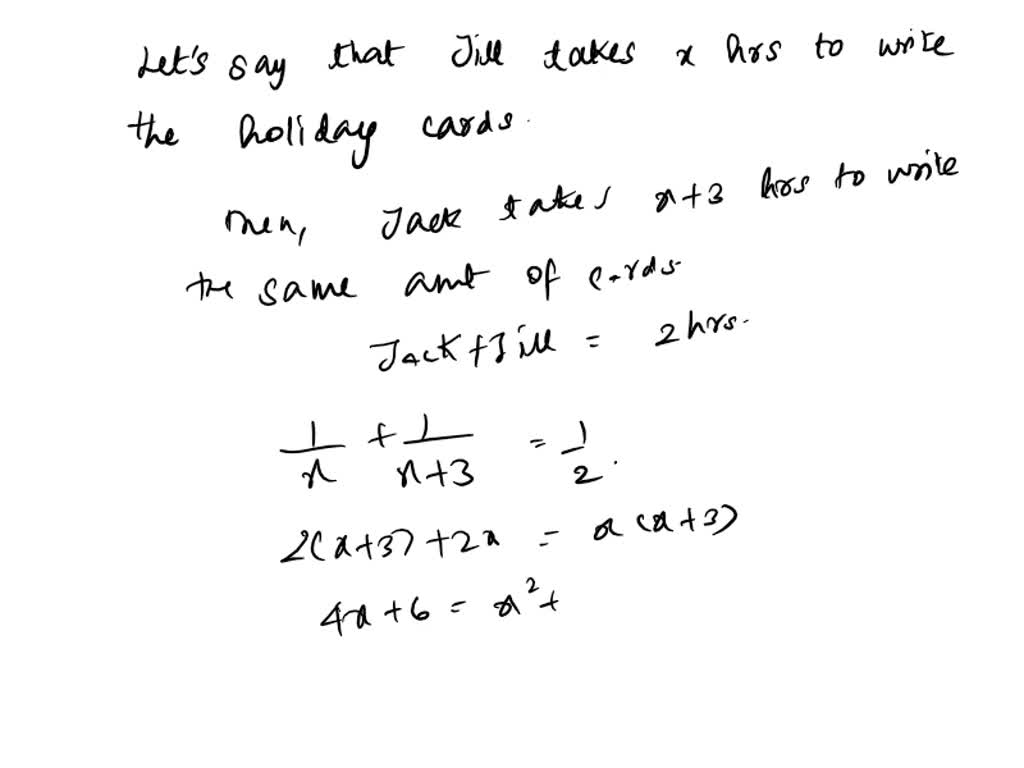 Let's say that Jill takes x hrs to write
the holiday cards.
Then, Jack takes x+3 hrs to write
the same amt of cards.
Jack+Jill = 2 hrs.
1/x + 1/x+3 = 1/2.
2(x+3)+2x = x(x+3)
4x+6 = x²+